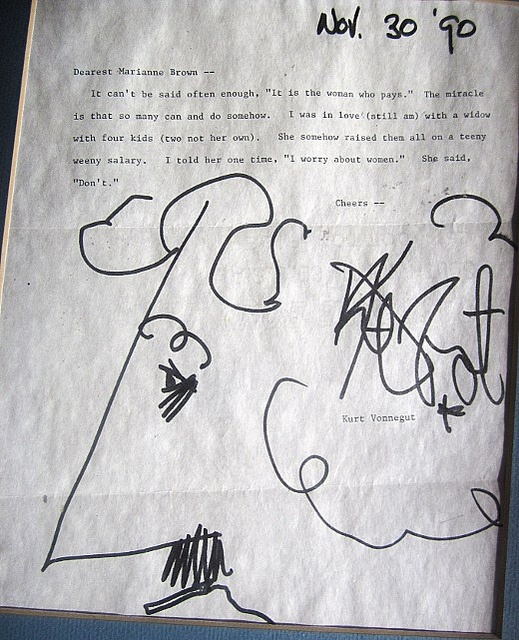 Nov. 30 '90
Dearest Marianne Brown --
It can't be said often enough, "It is the woman who pays." The miracle
is that so many can and do somehow. I was in love (still am) with a widow
with four kids (two not her own). She somehow raised them all on a teeny
weeny salary. I told her one time, "I worry about women." She said,
"Don't."
Cheers --
Kurt Vonnegut